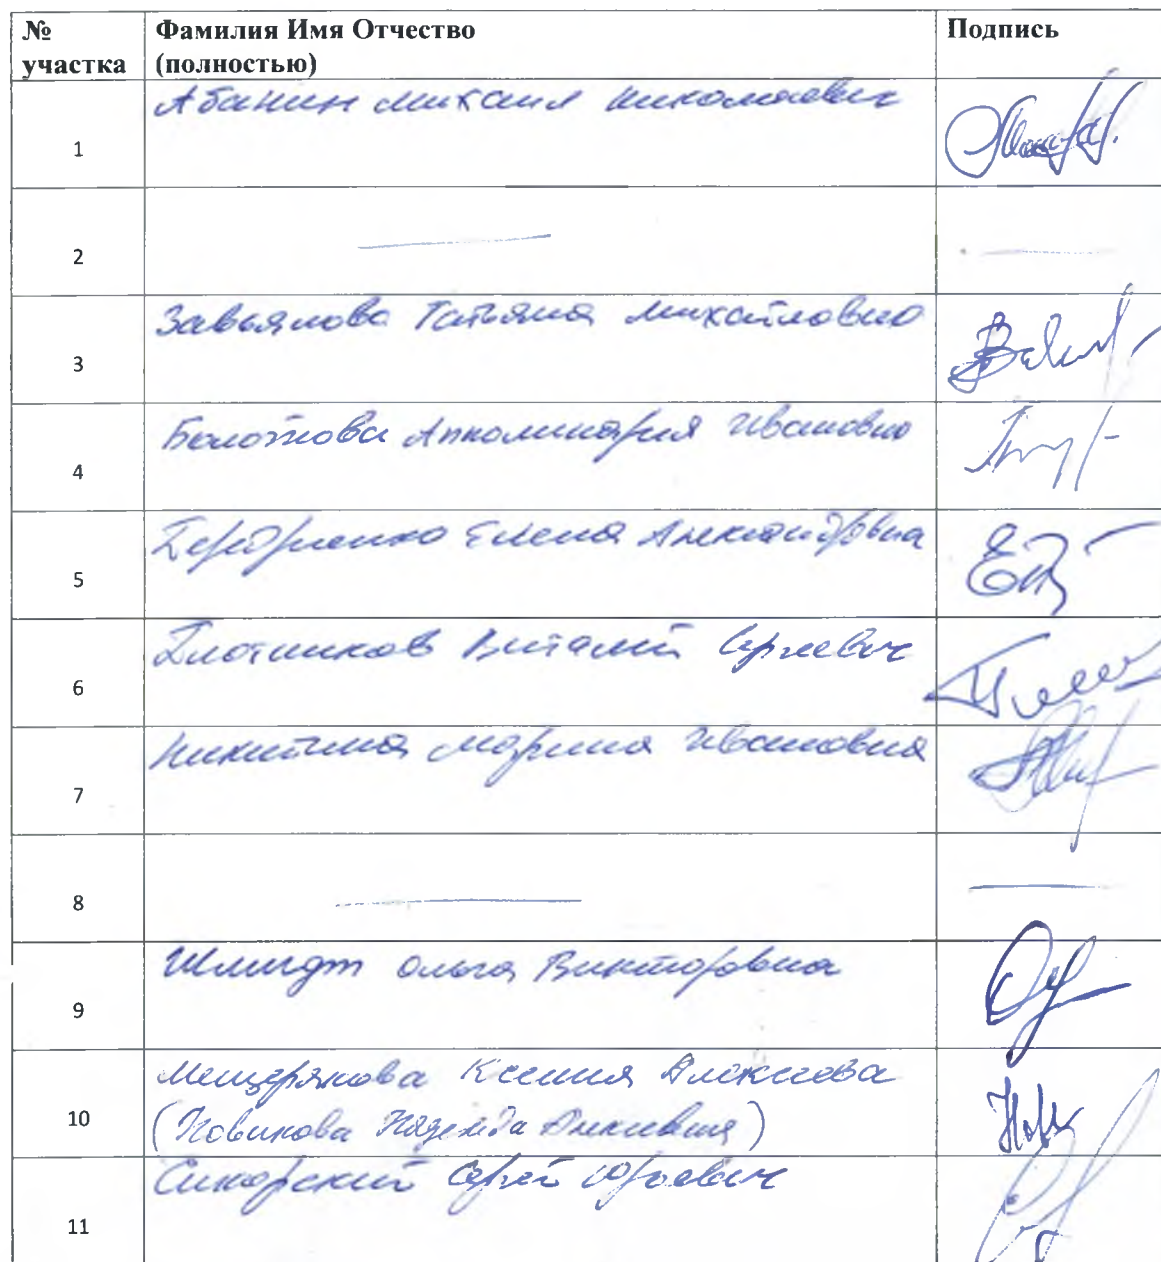 № участка Фамилия Имя Отчество (полностью) Подпись
1 Абанин Михаил Николаевич
2 —
3 Завьялова Татьяна Михайловна
4 Болотова Апполинария Ивановна
5 Елена Александровна
6 Плотников Виталий Сергеевич
7 Никитина Марина Ивановна
8 —
9 Шмидт Ольга Викторовна
10 Мещерякова Ксения Алексеева
(Новикова Надежда)
11 Сикорский Сергей Юрьевич